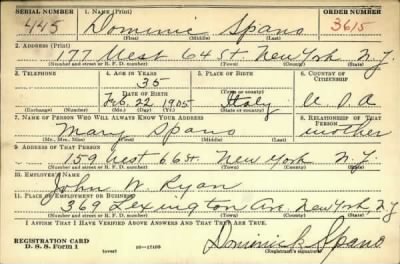 SERIAL NUMBER 1. NAME (Print) ORDER NUMBER
445 Dominic Spano 3615
(First) (Middle) (Last)
2. ADDRESS (Print)
177 West 64 St. New York N.Y.
(Number and street or R. F. D. number) (Town) (County) (State)
3. TELEPHONE 4. AGE IN YEARS 5. PLACE OF BIRTH 6. COUNTRY OF CITIZENSHIP
35
DATE OF BIRTH
Feb. 22 1905 Italy U. S. A
(Exchange) (Number) (Mo.) (Day) (Yr.) (State or country)
7. NAME OF PERSON WHO WILL ALWAYS KNOW YOUR ADDRESS 8. RELATIONSHIP OF THAT PERSON
Mary Spano mother
(Mr., Mrs., Miss) (First) (Middle) (Last)
9. ADDRESS OF THAT PERSON
159 West 66 St. New York N.Y.
(Number and street or R. F. D. number) (Town) (County) (State)
10. EMPLOYER'S NAME
John W. Ryan
11. PLACE OF EMPLOYMENT OR BUSINESS
369 Lexington Av. New York, N.Y
(Number and street or R. F. D. number) (Town) (County) (State)
I AFFIRM THAT I HAVE VERIFIED ABOVE ANSWERS AND THAT THEY ARE TRUE.
REGISTRATION CARD
D. S. S. Form 1 (over) 16—17105
Dominick Spano
(Registrant's signature)